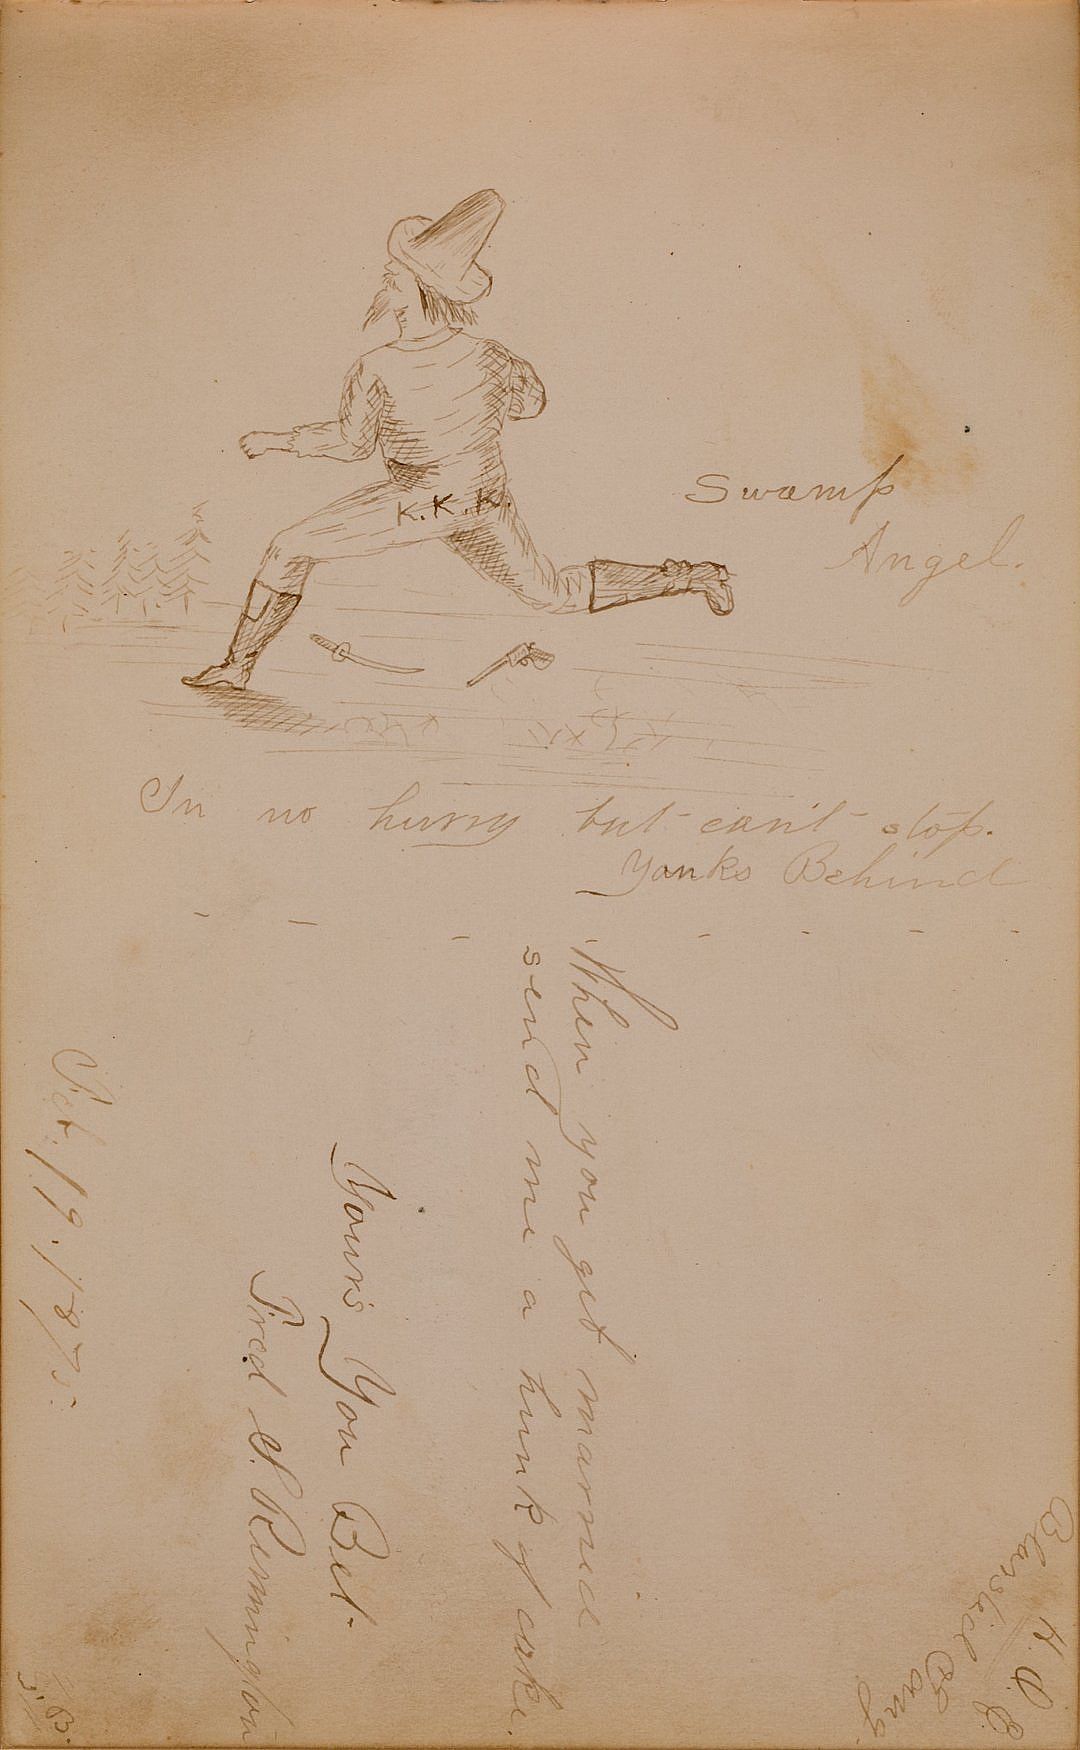 K.K.K.
Swamp
Angel.
In no hurry but can't stop.
Yanks Behind
When you get married
send me a hunk of cake.
Yours You Bet
Fred S. Remington
Oct. 19. 1875.
H. P. C.
Blasted Gang.